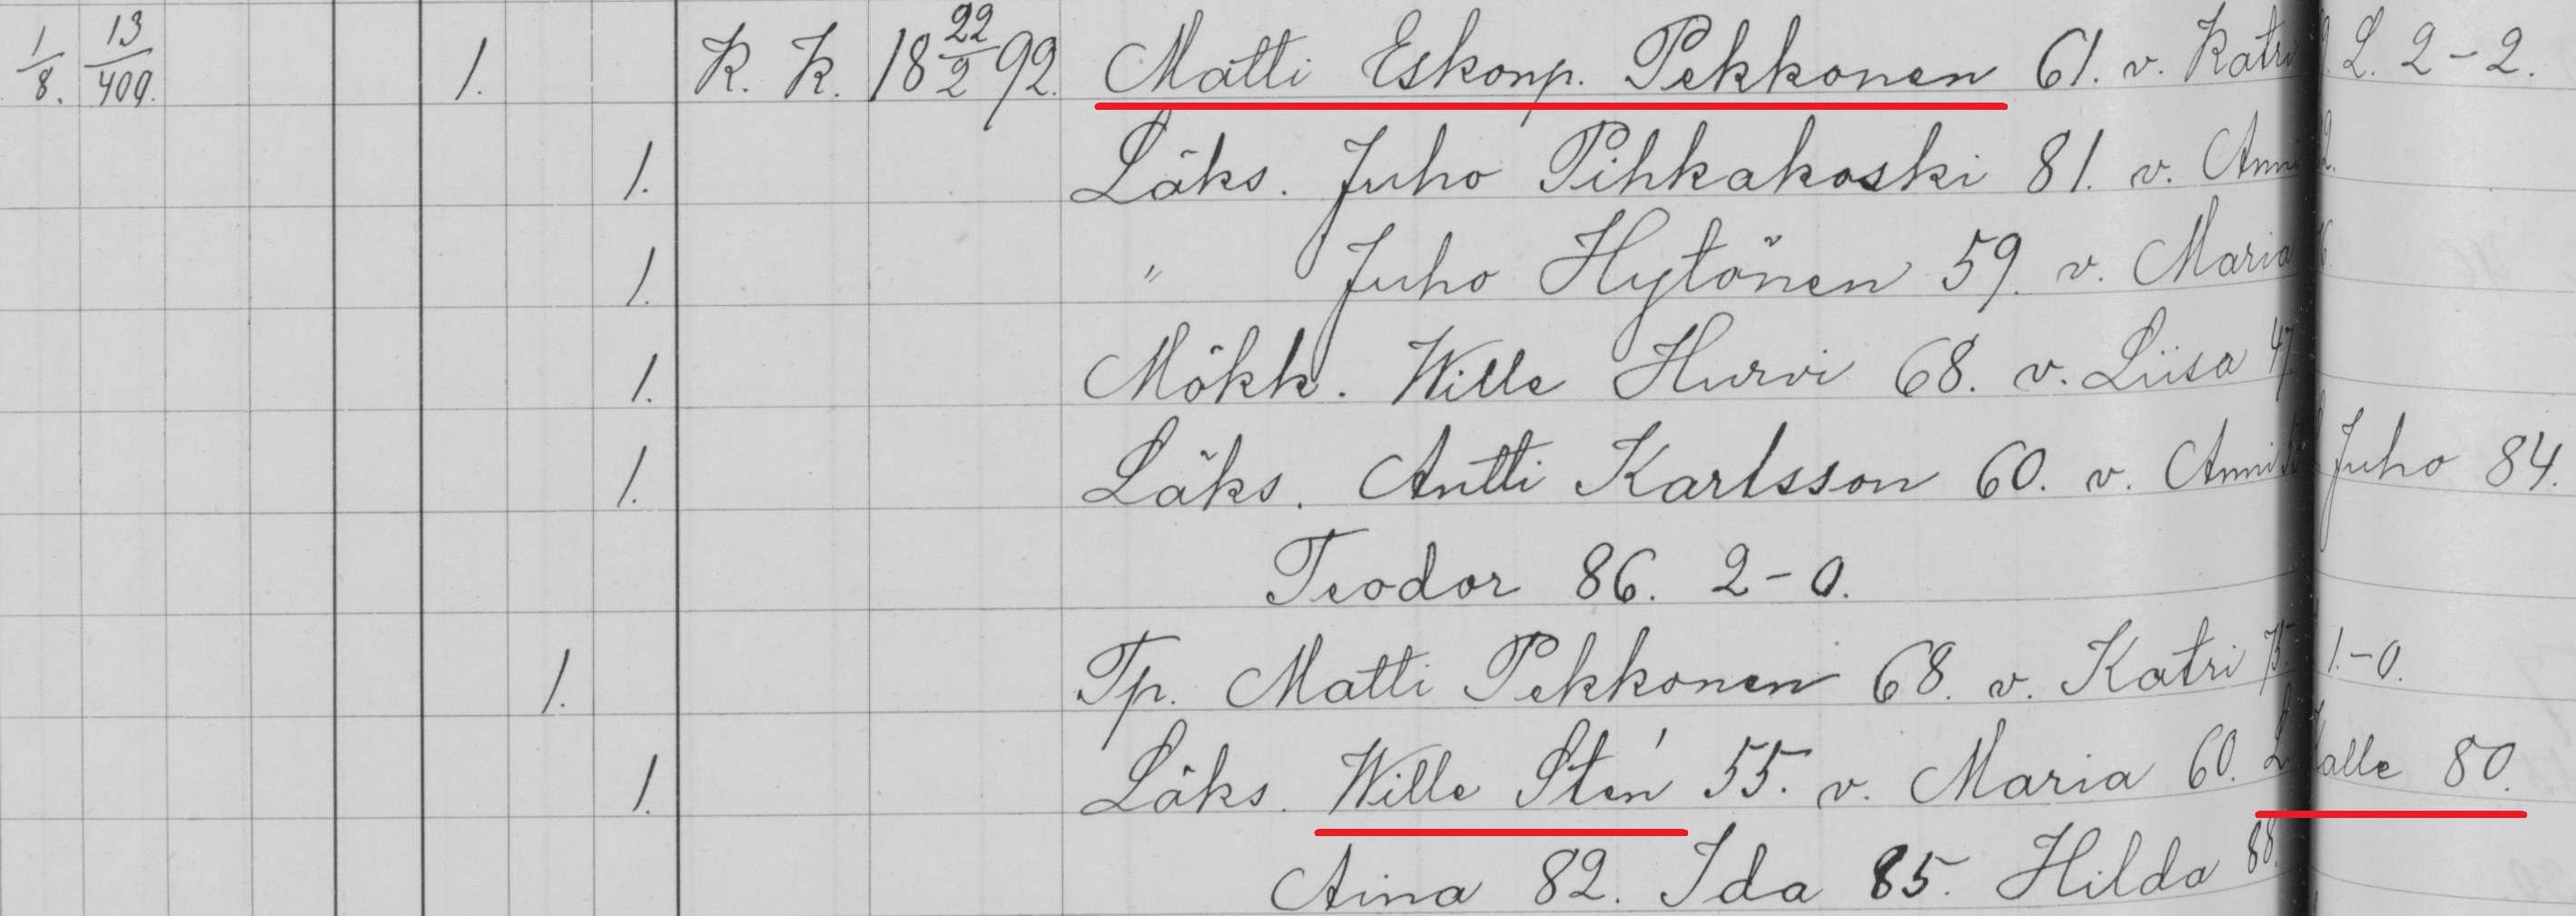 1/8. 13/400. 1. K. K. 18 22/2 92. Matti Eskonp. Pekkonen 61. v. Katri L. 2-2.
1. Läks. Juho Pihkakoski 81. v. Anni
1. " Juho Hytönen 59. v. Maria
1. Mökk. Wille Hurvi 68. v. Liisa 47
1. Läks. Antti Karlsson 60. v. Anni Juho 84.
Teodor 86. 2-0.
1. Tp. Matti Pekkonen 68. v. Katri 75. 1.-0.
1. Läks. Wille Stén 55. v. Maria 60. L. Kalle 80.
Aina 82. Ida 85. Hilda 88.